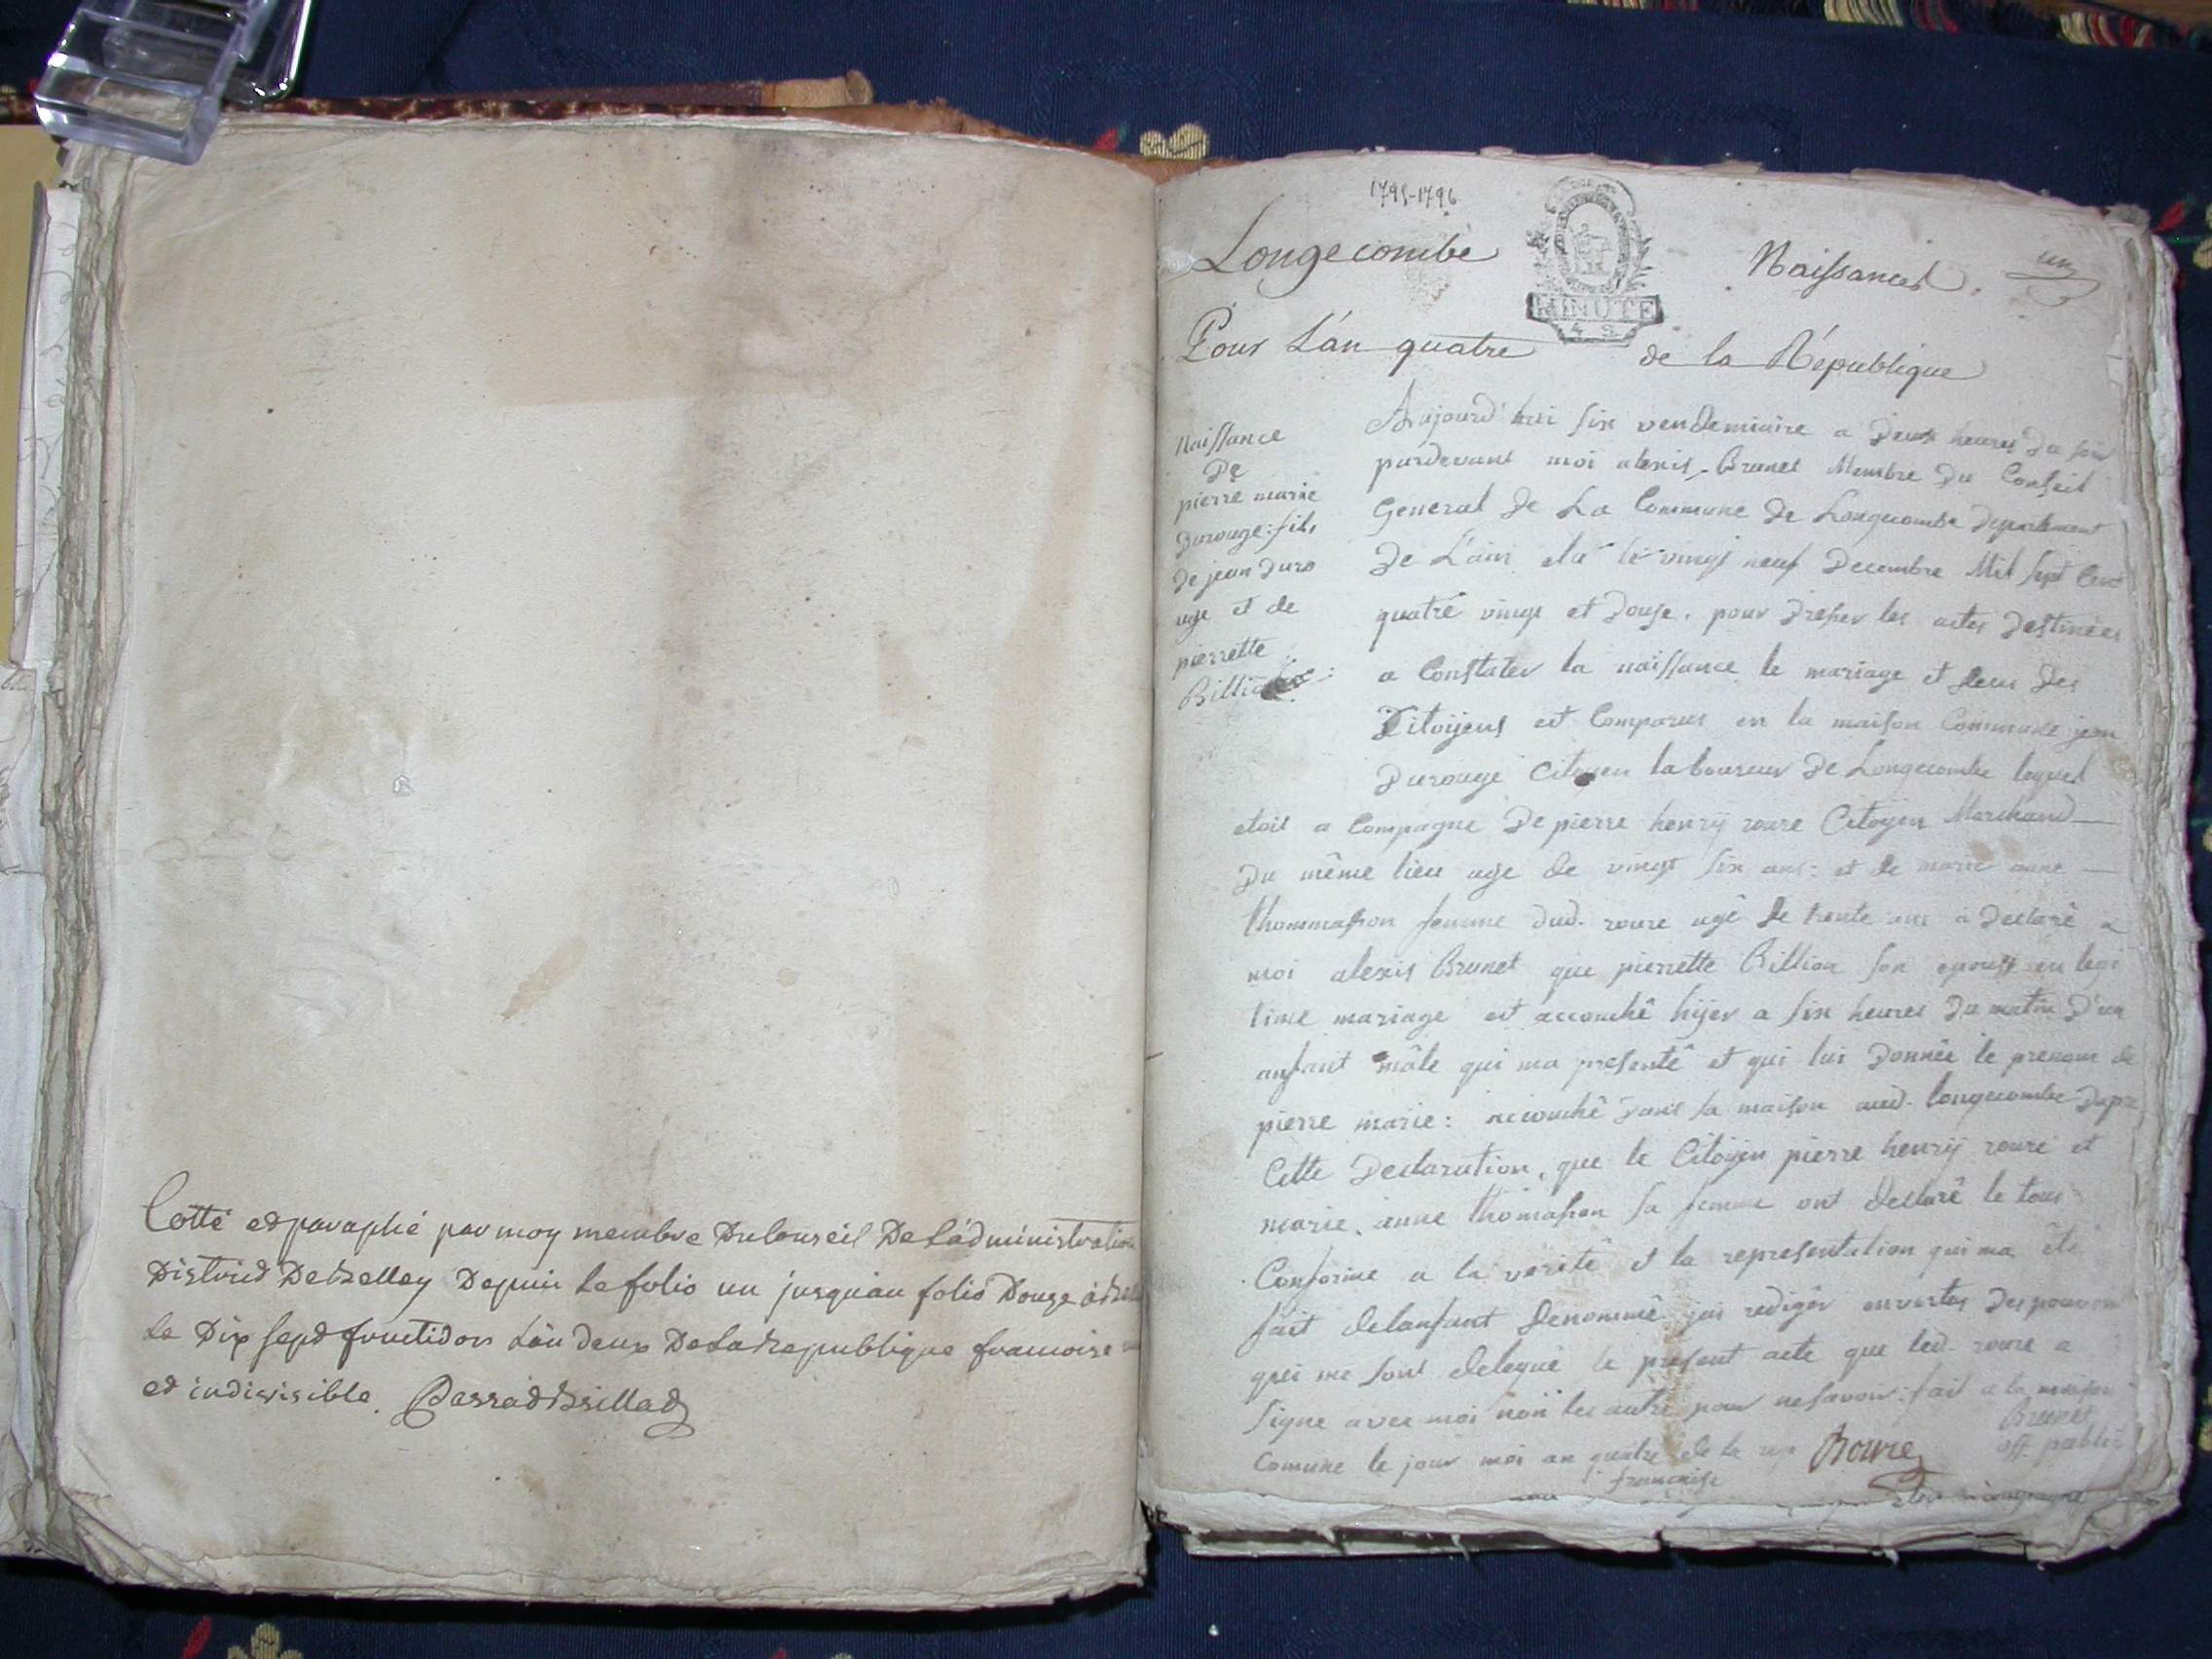 Cotté et paraphé par moy membre Du Conseil De L'administration
District De Belley Depuis le folio un jusquau folio Douze à
Le Dix sept fructidor L'an deux De La Republique francoise
et indivisible.
1795-1796
Longecombe
MINUTE
Naissances
un
Pour L'an quatre de la République
Naissance
De
pierre marie
Durouge: fils
De jean Duro
uge et de
pierrette
Aujourd'hui six vendemiaire a Deux heures Du soir
pardevant moi alexis Brunet Membre Du Conseil
General De La Commune De Longecombe Departement
De L'ain elu le vingt neuf Decembre Mil Sept Cent
quatre vingt et Douse. pour Dresser les actes Destinées
a Constater la naissance le mariage et deces Des
Citoijens est Comparus en la maison Commune jean
Durouge Citoyen laboureur De Longecombe lequel
etoit a Compagne De pierre henrij roure Citoyen Marchand
Du même lieu age de vingt six ans: et de marie anne
thommasson femme dud. roure agé de trente ans a Declaré a
moi alexis Brunet que pierrette Billion son epouse en legi
time mariage est accouché hijer a six heures Du matin D'un
anfant mâle qui ma presenté et qui lui Donnée le prenom de
pierre marie: accouché Dans sa maison aud. longecombe Dapre
Cette Declaration, que le Citoyen pierre henrij roure et
marie anne thomasson sa femme ont declaré le tous
Conforme a la verité et la representation qui ma été
fait delanfant denommé jai rediger envertus Des pouvoir
qui me sont delegué le present acte que led. roure a
Signe avec moi non les autre pour ne savoir: fait a la maison
Comune le jour moi an quatre de la rep
francaise
Roure
Brunet
off. public